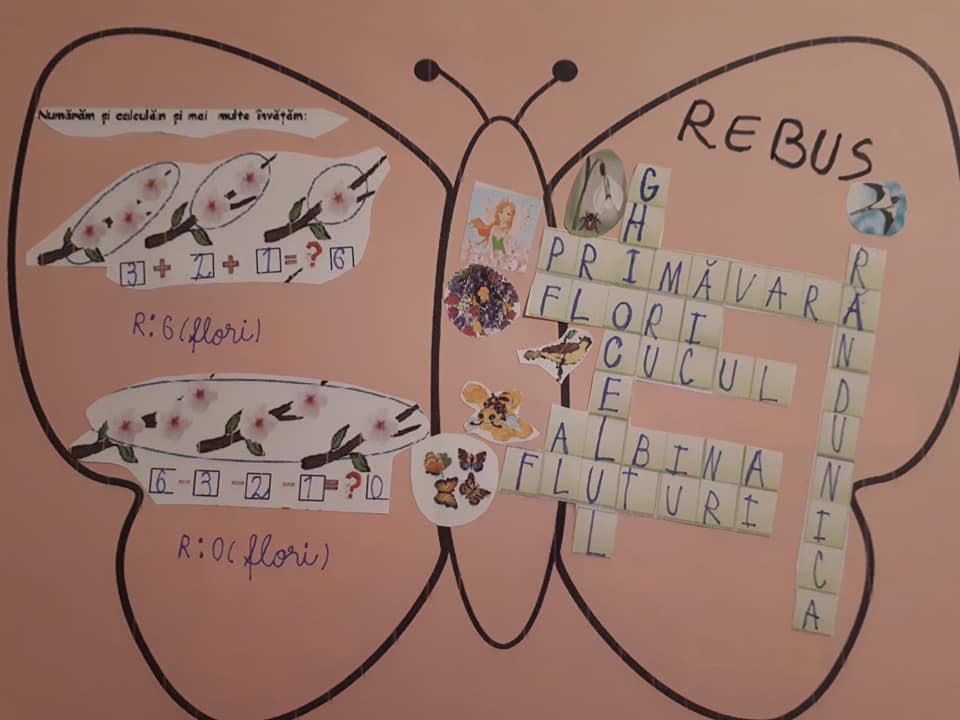 Numărăm și calculăm și mai multe învățăm:
3 + 2 + 1 = ? 6
R: 6 (flori)
6 - 3 - 2 - 1 = ? 0
R: 0 (flori)
REBUS
GHIOCELUL
PRIMĂVARA
FLORI
CUCUL
ALBINA
FLUTURI
RÂNDUNICA